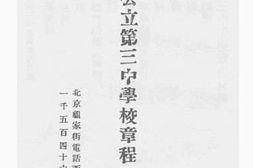 公立第三中學校章程
北京祖家街電話西
一千五百四十六